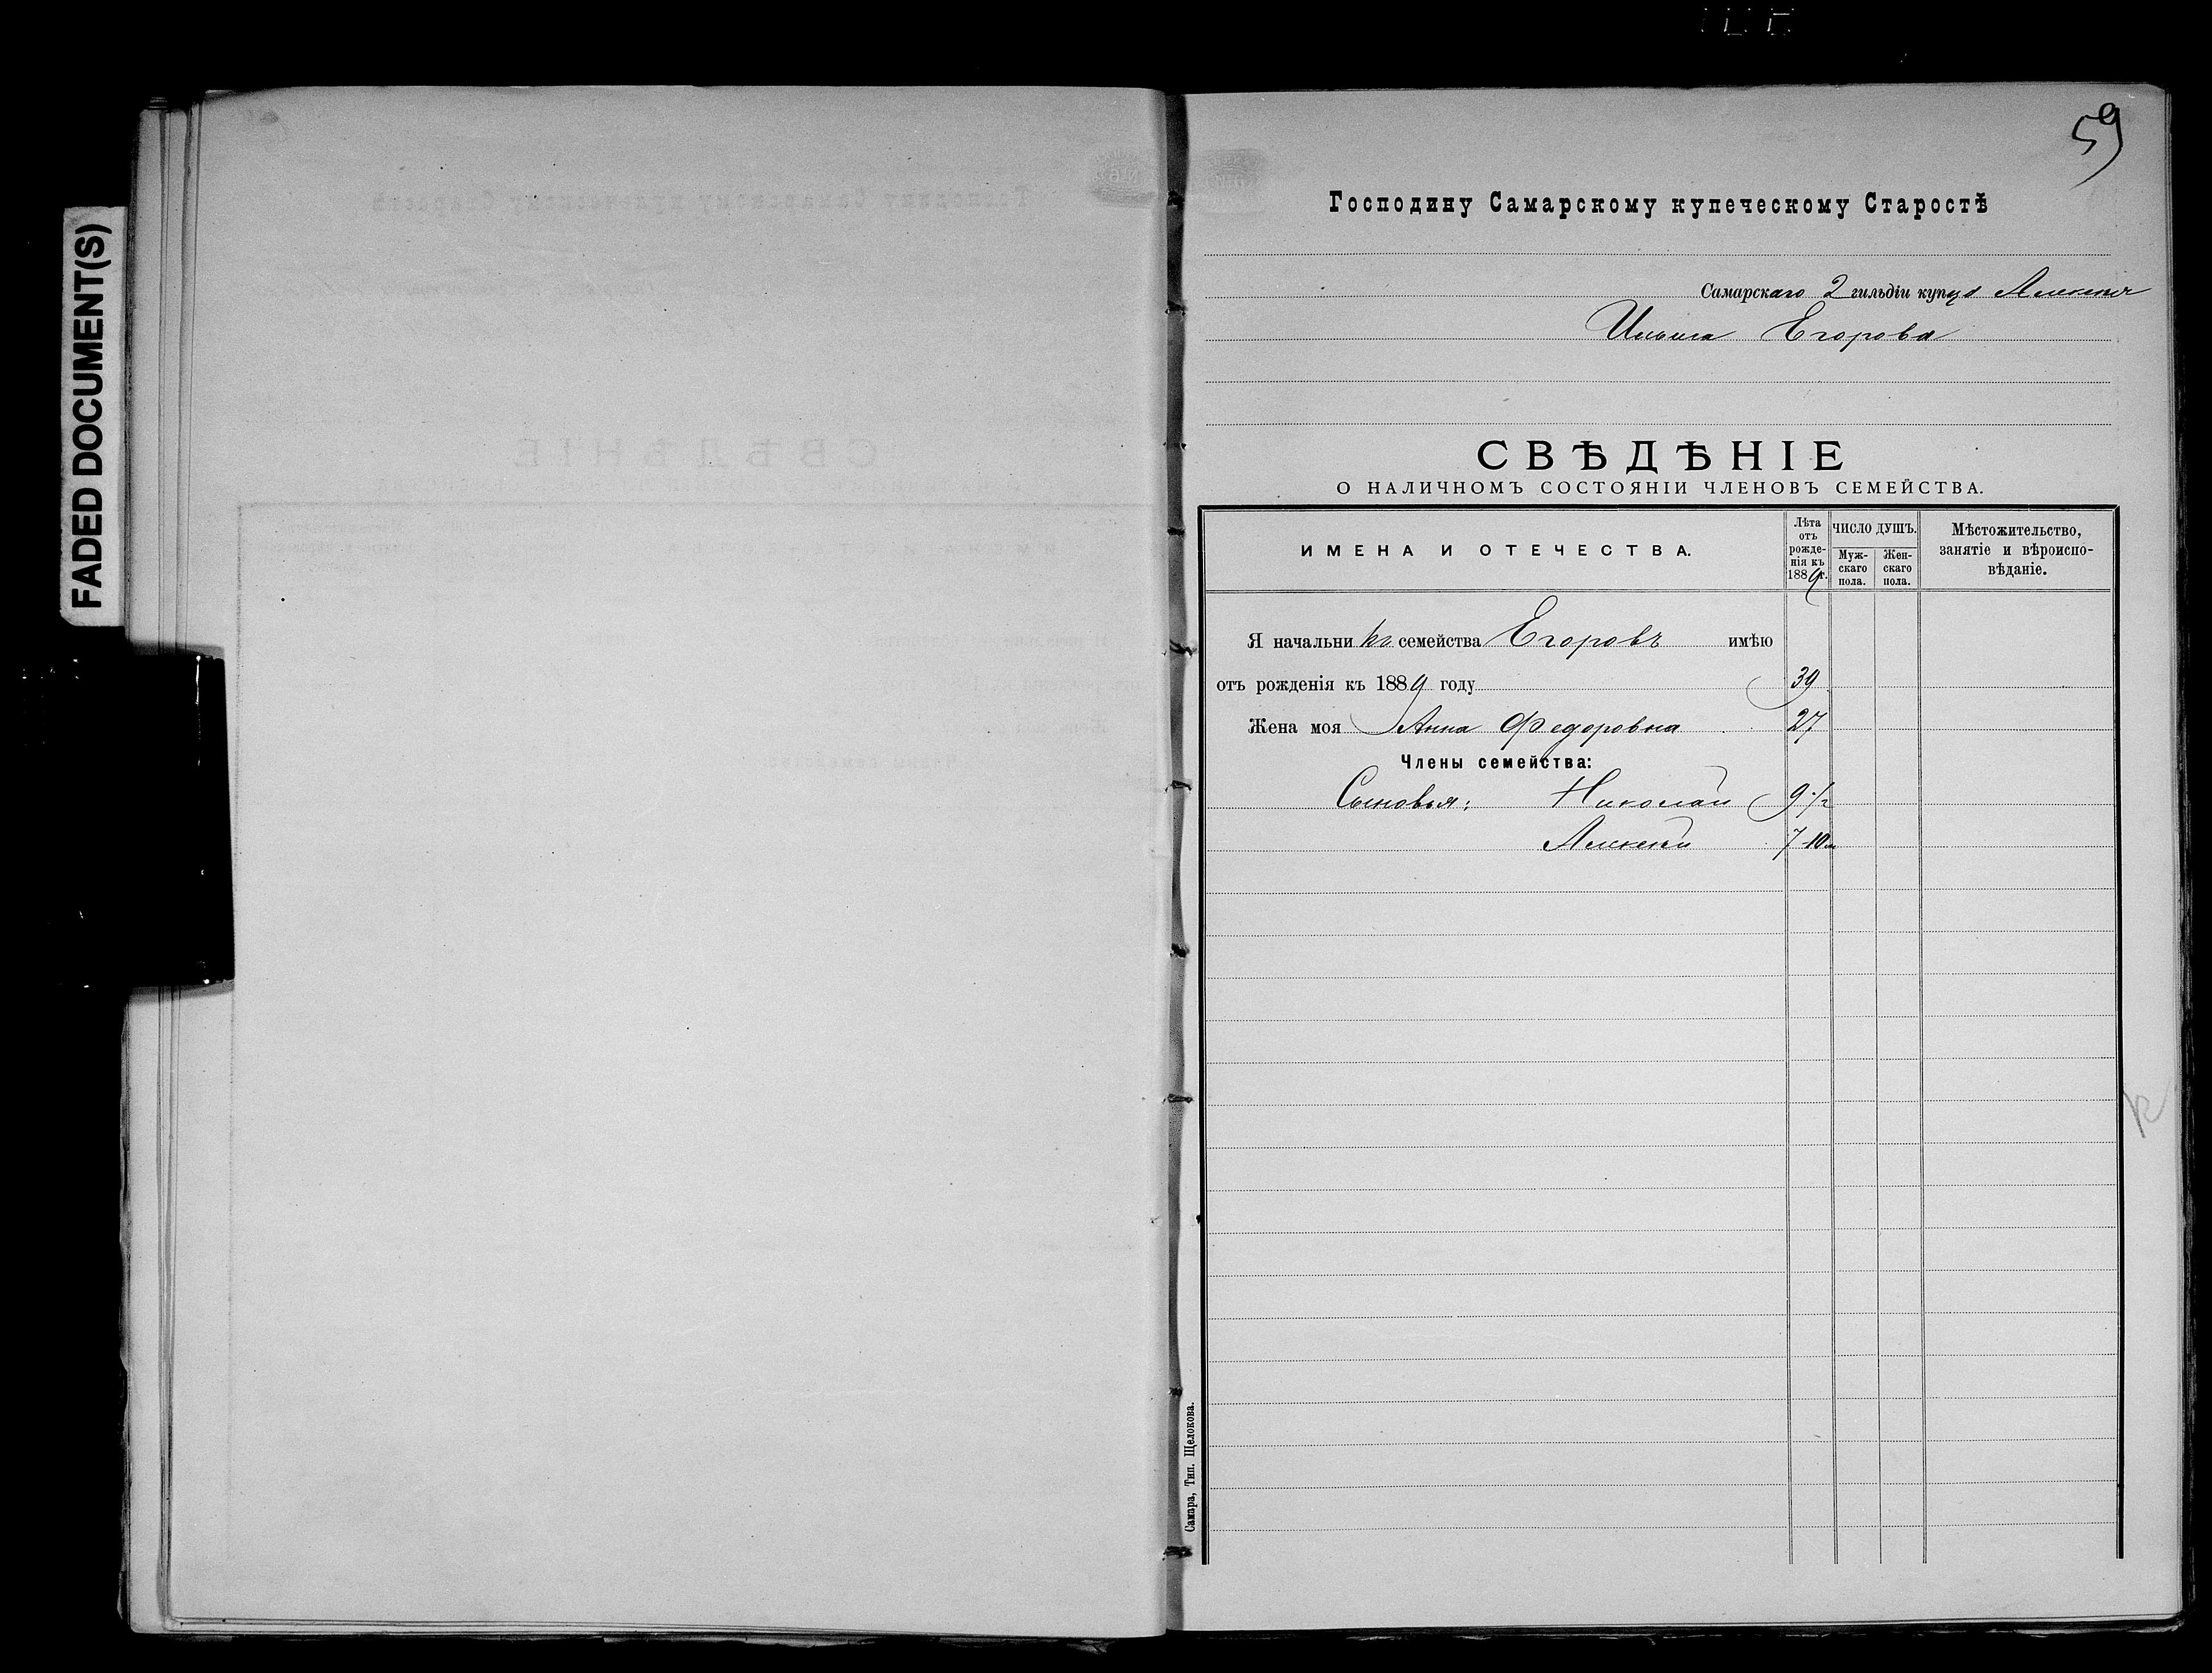 FADED DOCUMENT(S)
59
Господину Самарскому купеческому Старостѣ
Самарскаго 2 гильдіи купца Алексѣя
Ильича Егорова
СВѢДѢНІЕ
О НАЛИЧНОМЪ СОСТОЯНІИ ЧЛЕНОВЪ СЕМЕЙСТВА.
ИМЕНА И ОТЕЧЕСТВА.
Лѣта отъ рожде-нія къ 1889 г.
ЧИСЛО ДУШЪ.
Муж-скаго пола.
Жен-скаго пола.
Мѣстожительство,
занятіе и вѣроиспо-
вѣданіе.
Я начальникъ семейства Егоровъ имѣю
отъ рожденія къ 1889 году 39
Жена моя Анна Федоровна 27
Члены семейства:
Сыновья: Николай 9 1/2
Алексѣй 7 10м
Самара, Тип. Щелокова.